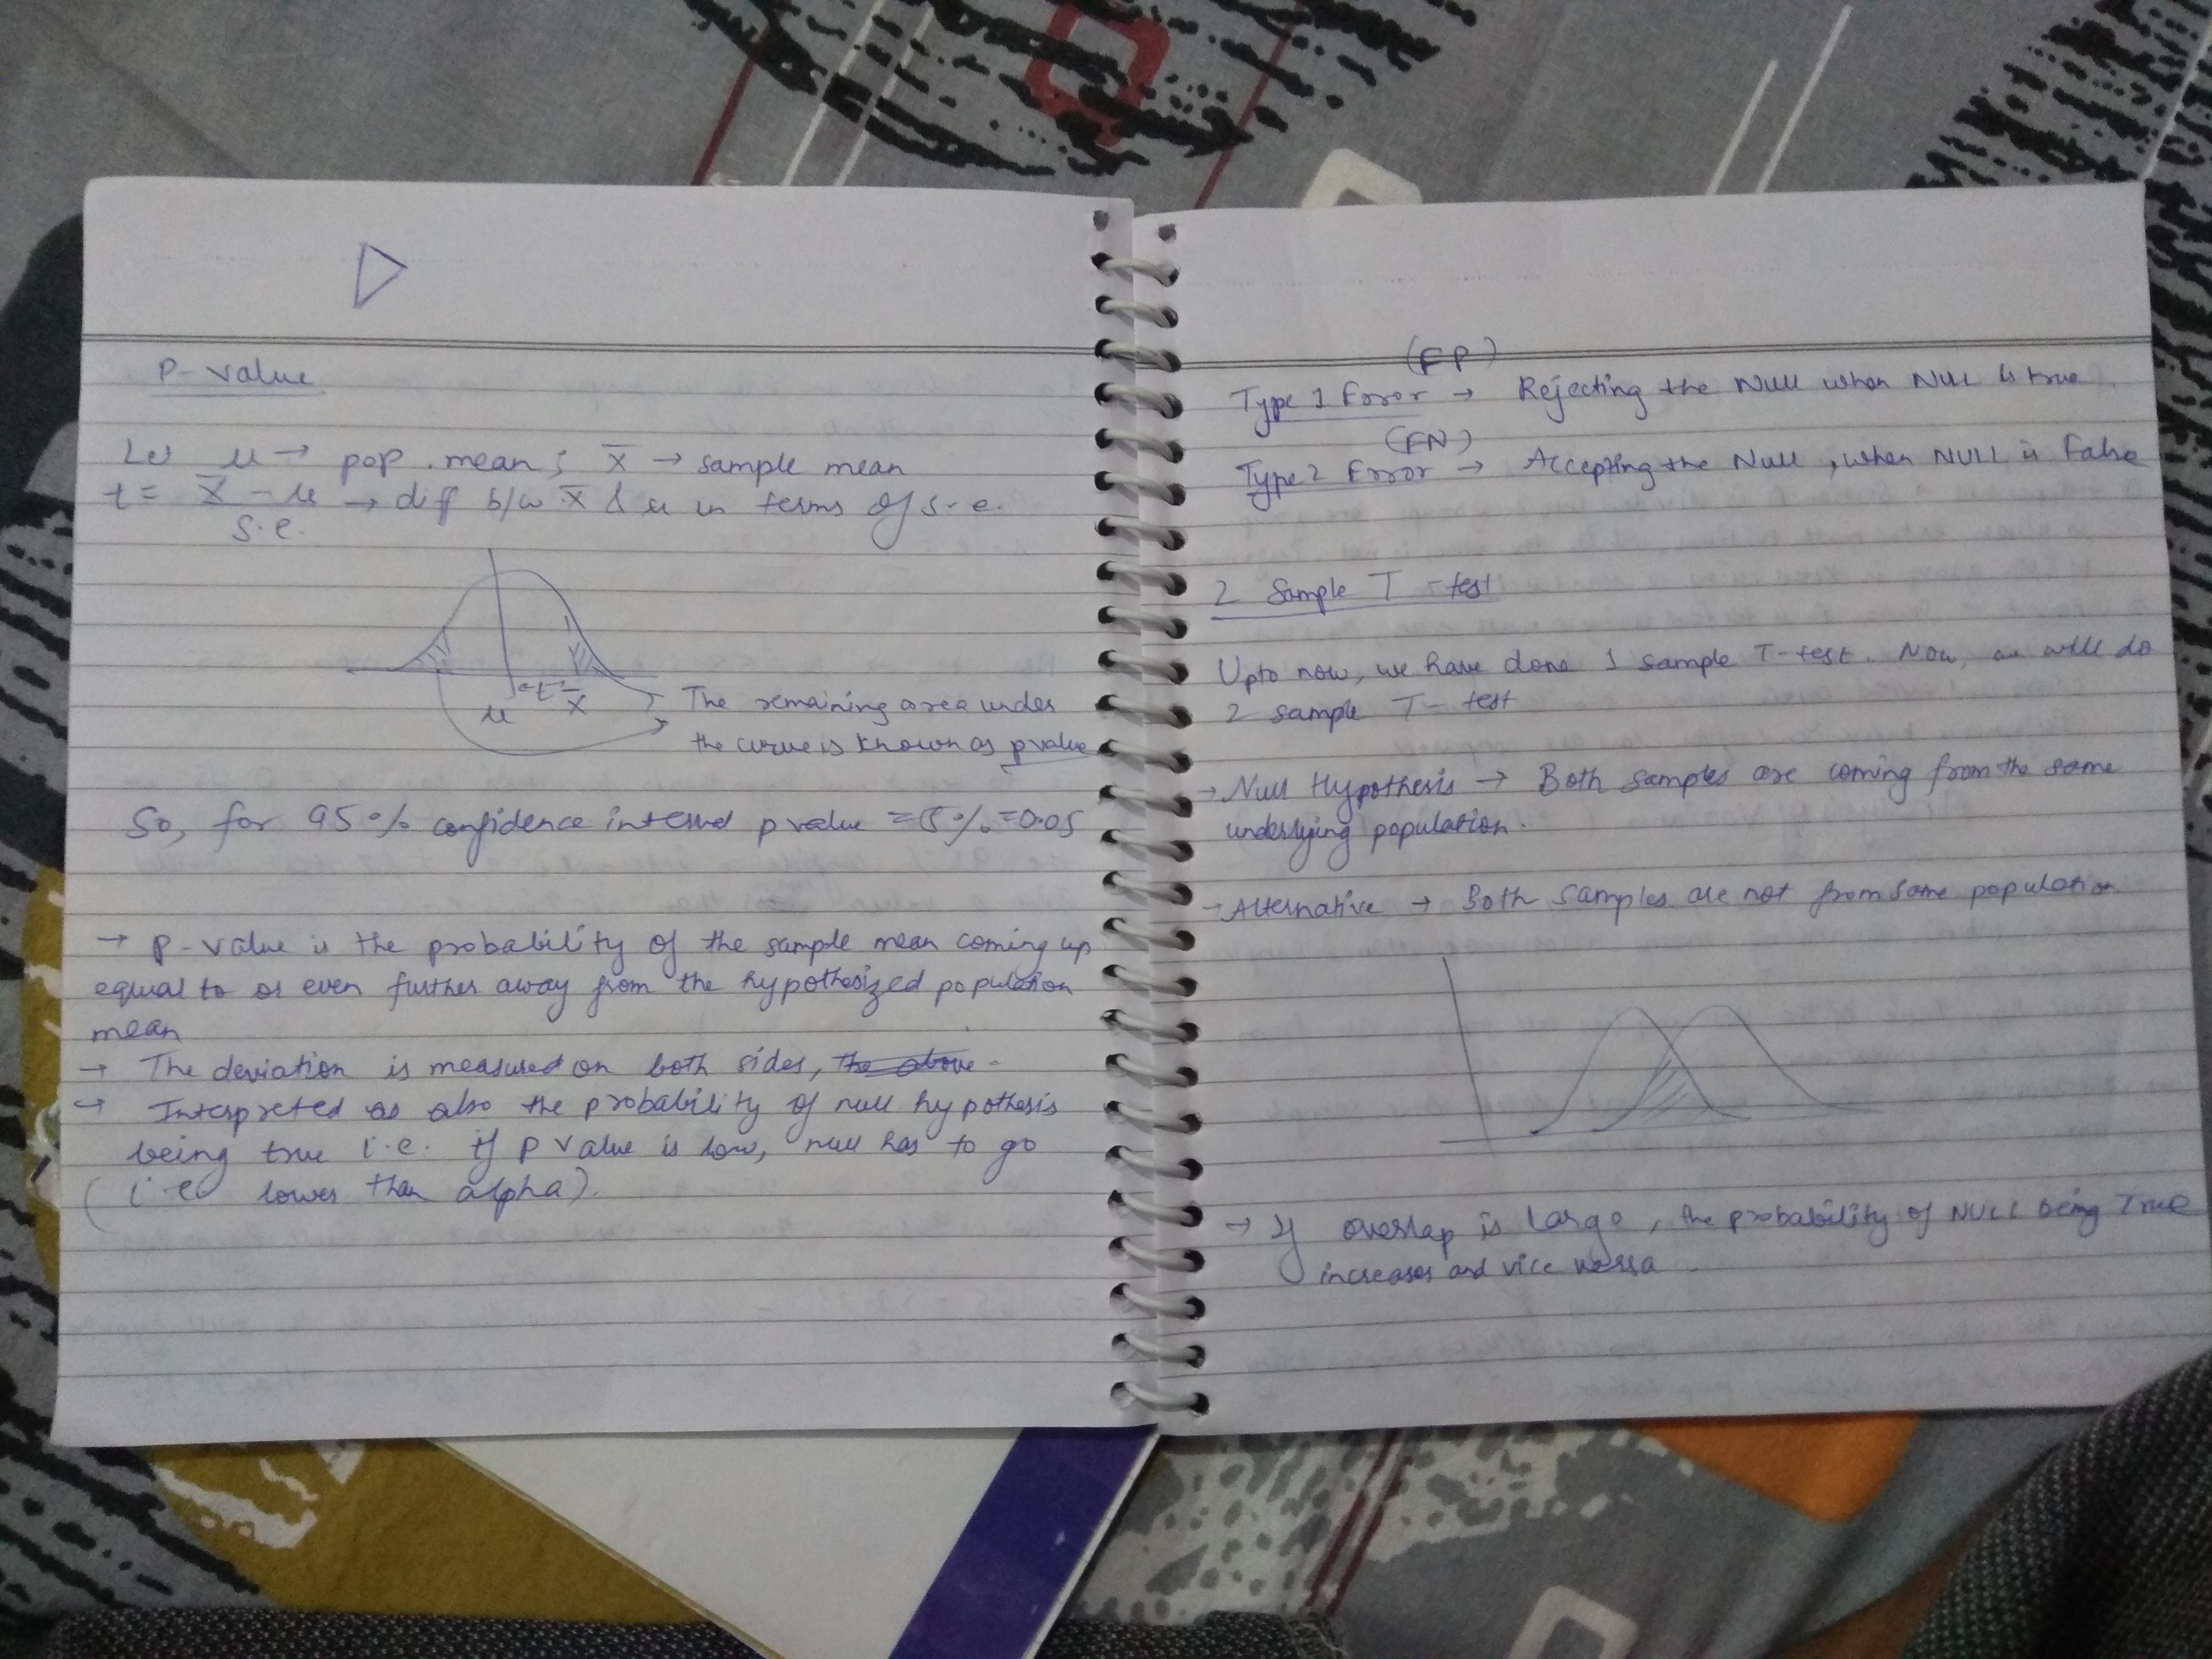 P-value
Let μ → pop. mean; x̄ → sample mean
t = x̄ - μ / s.e. → diff b/w x̄ & μ in terms of s.e.
←t→
μ x̄
The remaining area under
the curve is known as p value
So, for 95% confidence interval p value = 5% = 0.05
→ P-value is the probability of the sample mean coming up
equal to or even further away from the hypothesized population
mean
→ The deviation is measured on both sides, the above
→ Interpreted as also the probability of null hypothesis
being true i.e. if p value is low, null has to go
(i.e lower than alpha).
(FP)
Type 1 Error → Rejecting the Null when NULL is true.
(FN)
Type 2 Error → Accepting the Null, when NULL is False
2 Sample T-test
Upto now, we have done 1 sample T-test. Now, we will do
2 sample T-test
→ Null Hypothesis → Both samples are coming from the same
underlying population.
→ Alternative → Both samples are not from same population
→ If overlap is large, the probability of NULL being True
increases and vice versa.